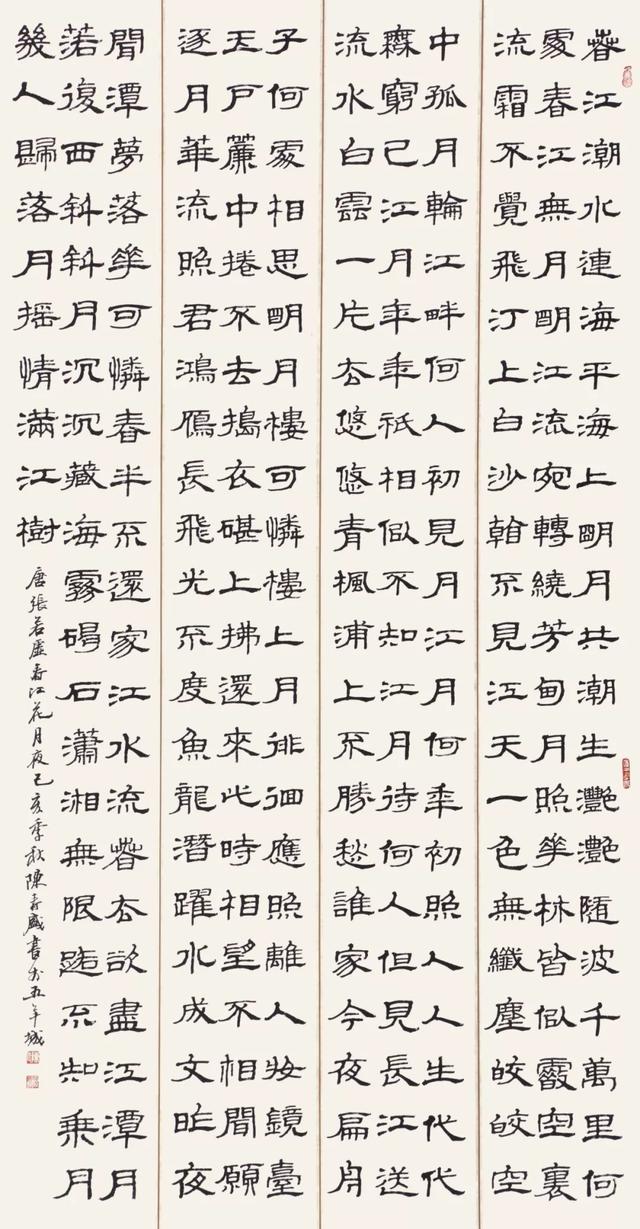 春江潮水連海平海上明月共潮生灩灩隨波千萬里何
處春江無月明江流宛轉繞芳甸月照華林皆似霰空裏
流霜不覺飛汀上白沙看不見江天一色無纖塵皎皎空
中孤月輪江畔何人初見月江月何年初照人人生代代
無窮已江月年年祇相似不知江月待何人但見長江送
流水白雲一片去悠悠青楓浦上不勝愁誰家今夜扁舟
子何處相思明月樓可憐樓上月徘徊應照離人妝鏡臺
玉戶簾中捲不去搗衣碪上拂還來此時相望不相聞願
逐月華流照君鴻鴈長飛光不度魚龍潛躍水成文昨夜
閒潭夢落華可憐春半不還家江水流春去欲盡江潭月
落復西斜斜月沉沉藏海霧碣石瀟湘無限路不知乘月
幾人歸落月搖情滿江樹
唐張若虛春江花月夜己亥季秋陳盛書於五羊城